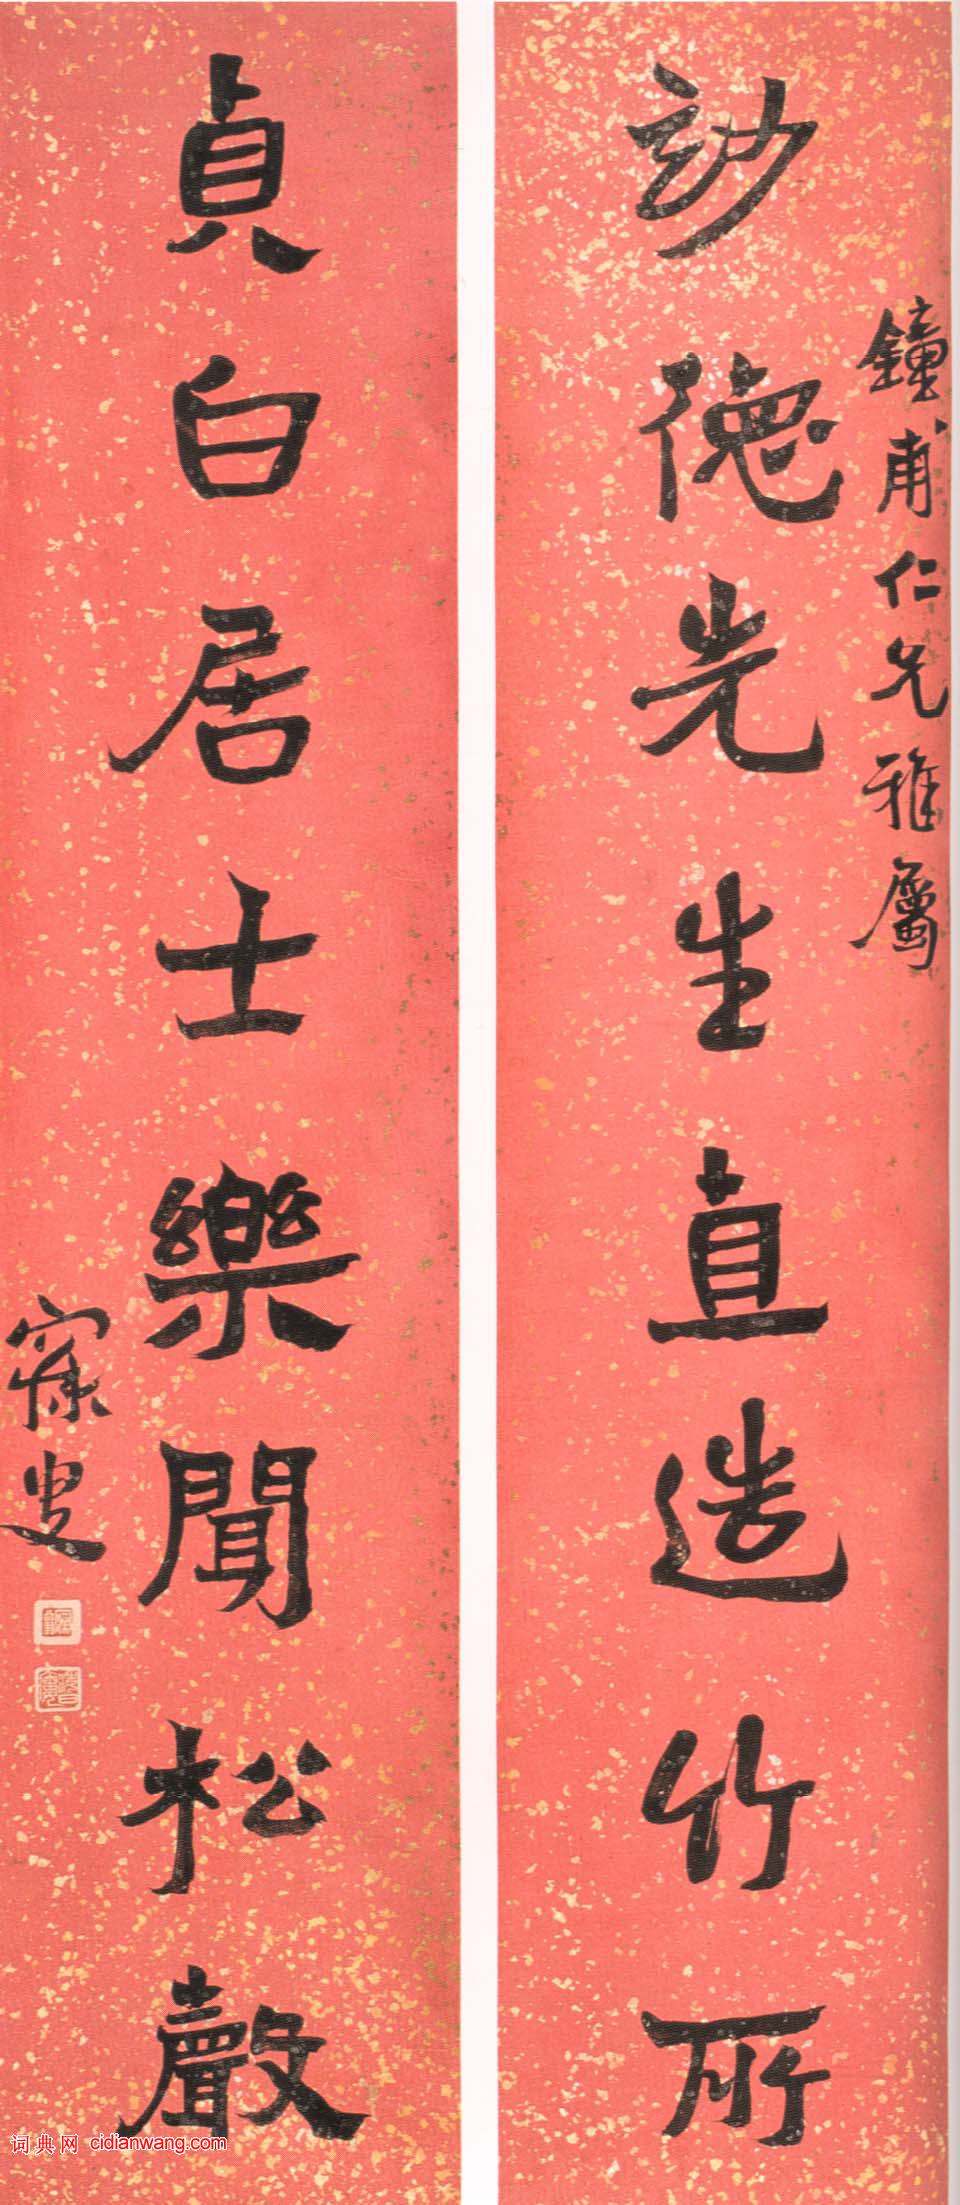 鐘甫仁兄雅屬
幼德先生直造竹所
貞白居士樂聞松聲
寐叟
词典网 cidianwang.com